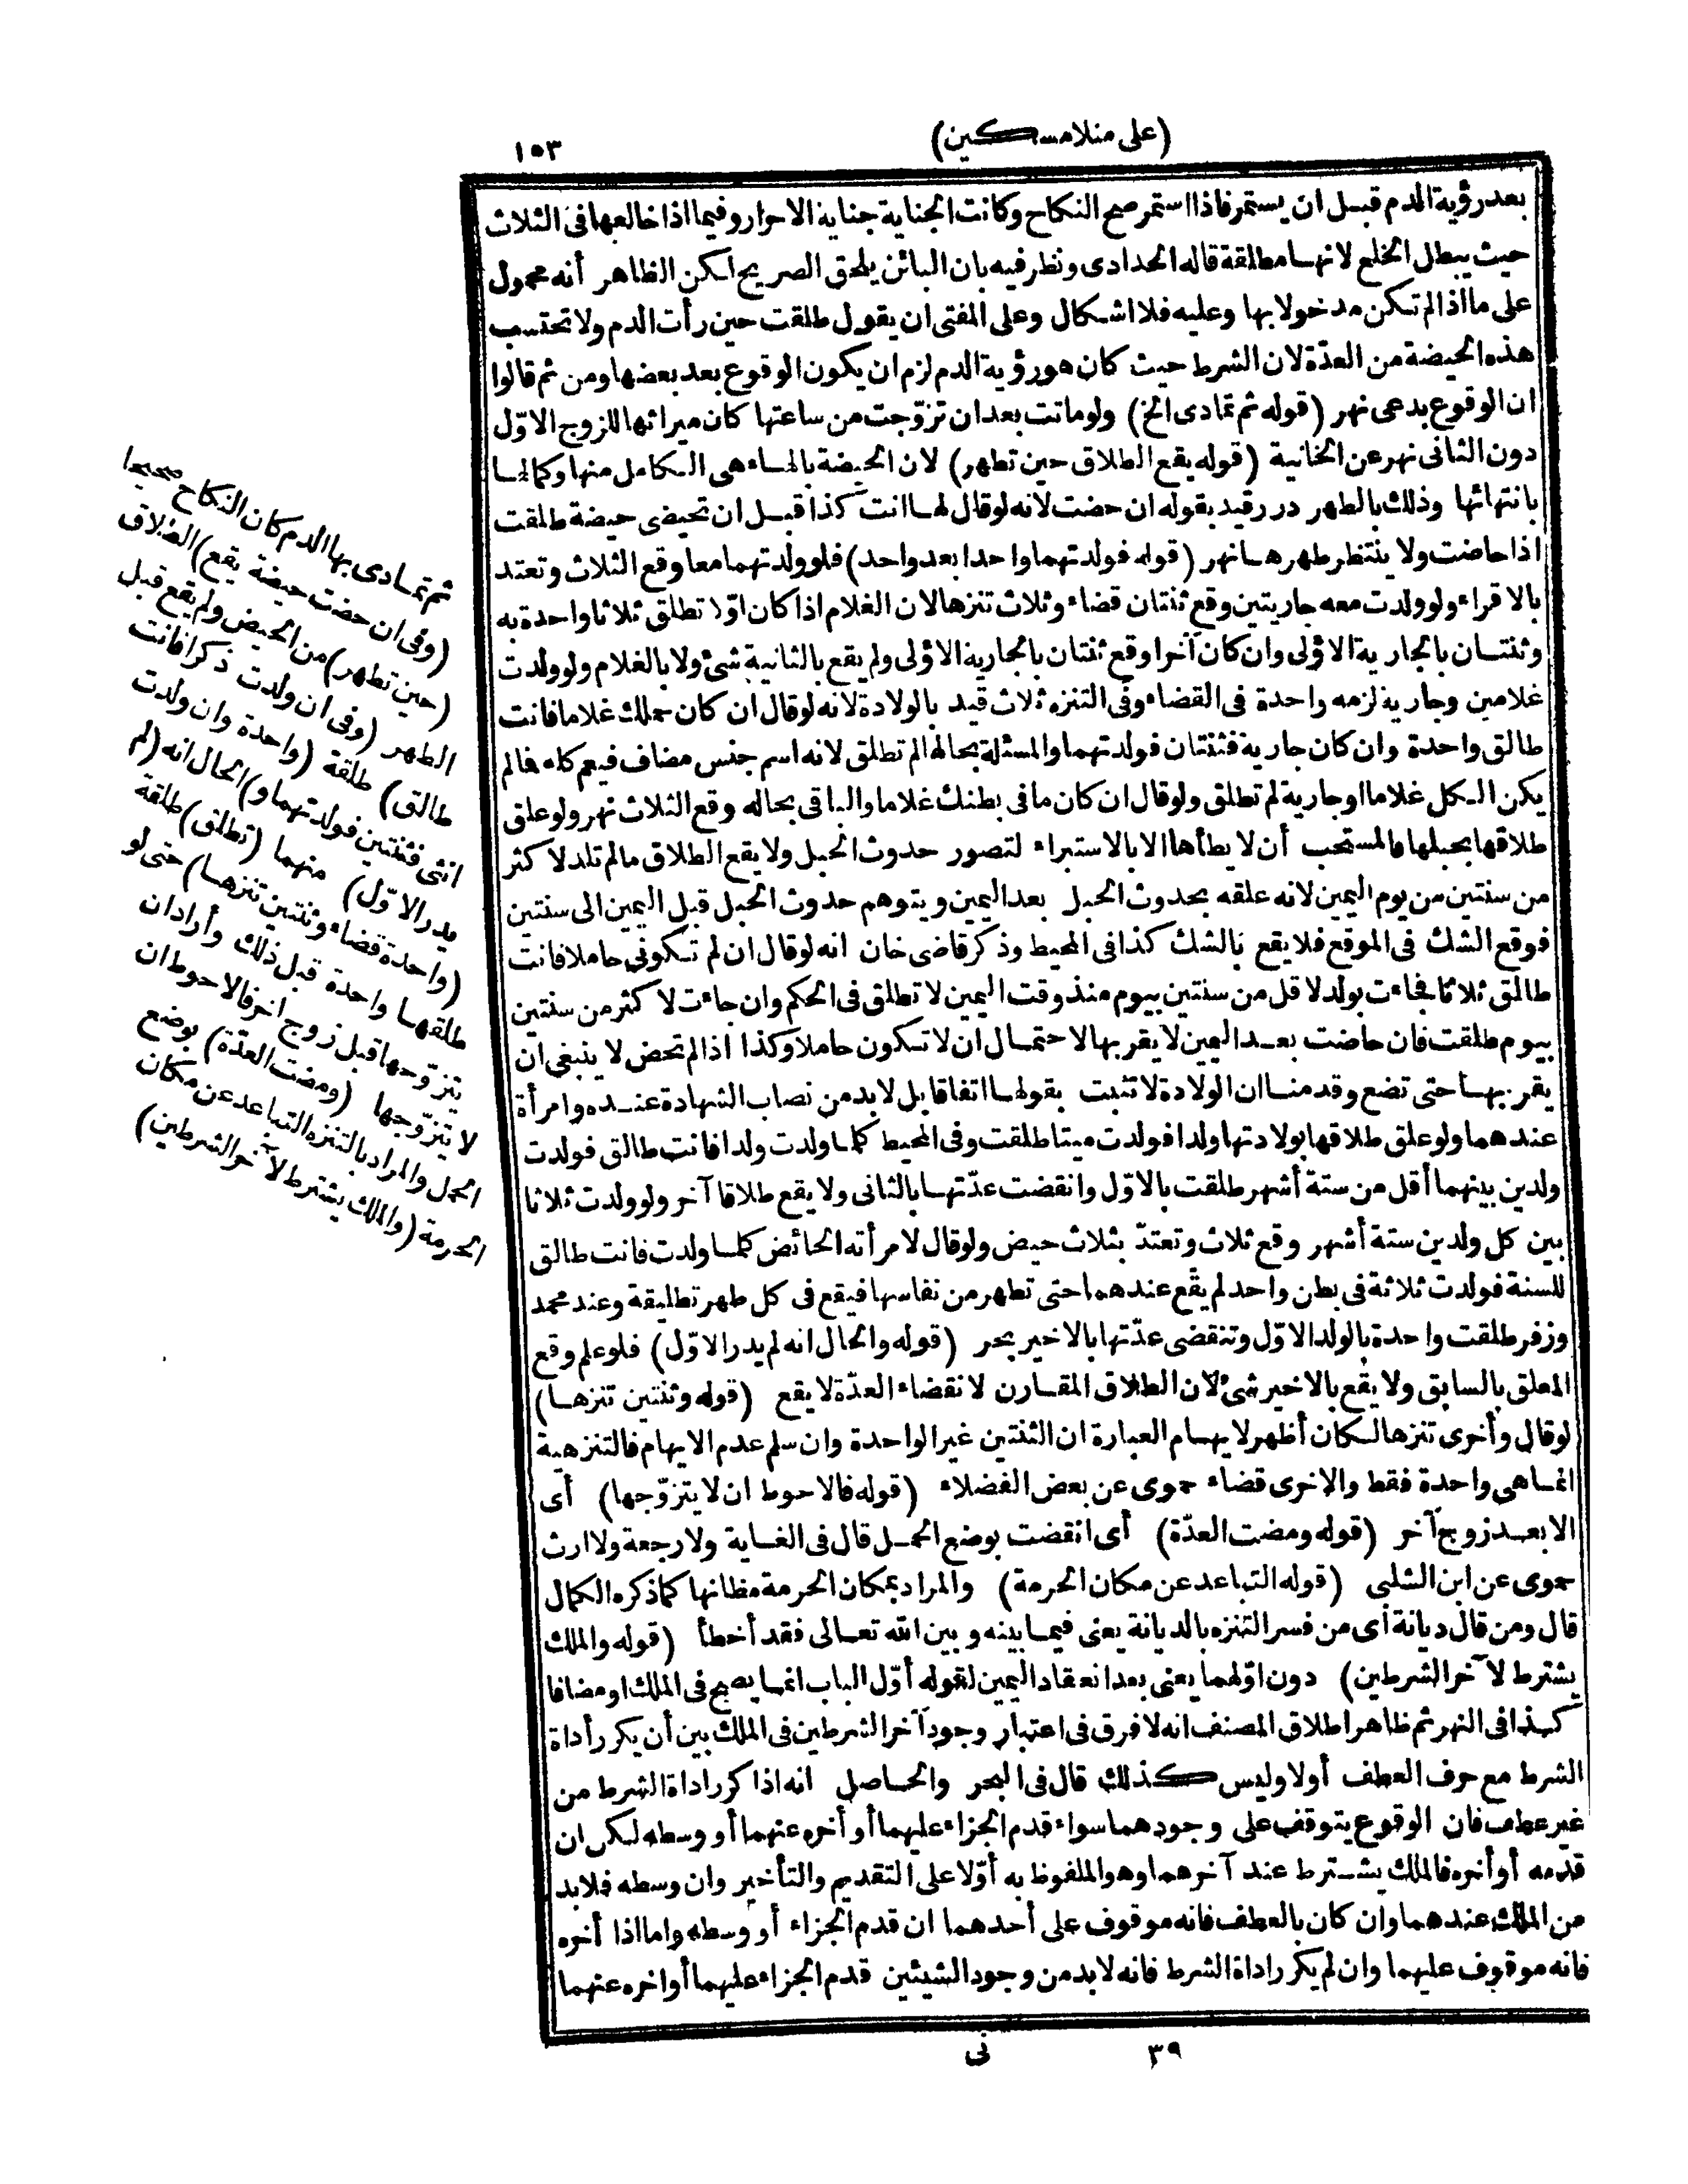 (على منلا مسكين)
١٥٣
بعد رؤية الدم قبل ان يستمر فاذا استمر صح النكاح وكانت الجناية جناية الاحرار وفيما اذا خالعها فى الثلاث
حيث يبطل الخلع لانها مطلقة قاله الحدادى ونظر فيه بان البائن يلحق الصريح لكن الظاهر أنه محمول
على ما اذا لم تكن مدخولا بها وعليه فلا اشكال وعلى المفتى ان يقول طلقت حين رأت الدم ولا تحتسب
هذه الحيضة من العدّة لان الشرط حيث كان هو رؤية الدم لزم ان يكون الوقوع بعد بعضها ومن ثم قالوا
ان الوقوع بدعى نهر (قوله ثم تمادى الخ) ولو ماتت بعد ان تزوّجت من ساعتها كان ميراثها للزوج الاوّل
دون الثانى نهر عن الخانية (قوله يقع الطلاق حين تطهر) لان الحيضة بالهاء هى الكامل منها وكمالها
بانتهائها وذلك بالطهر درر قيد بقوله ان حضت لانه لو قال لها انت كذا قبل ان تحيضى حيضة طلقت
اذا حاضت ولا ينتظر طهرها نهر (قوله فولدتهما واحدا بعد واحد) فلو ولدتهما معا وقع الثلاث وتعتد
بالاقراء ولو ولدت معه جاريتين وقع ثنتان قضاء وثلاث تنزها لان الغلام اذا كان اوّلا تطلق ثلاثا واحدة به
وثنتان بالجارية الاولى وان كان آخرا وقع ثنتان بالجارية الاولى ولم يقع بالثانية شئ ولا بالغلام ولو ولدت
غلامين وجارية لزمه واحدة فى القضاء وفى التنزه ثلاث قيد بالولادة لانه لو قال ان كان حملك غلاما فانت
طالق واحدة وان كان جارية فثنتان فولدتهما والمسئلة بحالها لم تطلق لانه اسم جنس مضاف فيعم كله فالم
يكن الكل غلاما او جارية لم تطلق ولو قال ان كان ما فى بطنك غلاما والباقى بحاله وقع الثلاث نهر ولو علق
طلاقها بحبلها فالمستحب أن لا يطأها الا بالاستبراء لتصور حدوث الحبل ولا يقع الطلاق ما لم تلد لاكثر
من سنتين من يوم اليمين لانه علقه بحدوث الحبل بعد اليمين ويتوهم حدوث الحبل قبل اليمين الى سنتين
فوقع الشك فى الموقع فلا يقع بالشك كذا فى المحيط وذكر قاضى خان انه لو قال ان لم تكونى حاملا فانت
طالق ثلاثا فجاءت بولد لاقل من سنتين بيوم منذ وقت اليمين لا تطلق فى الحكم وان جاءت لاكثر من سنتين
بيوم طلقت فان حاضت بعد اليمين لا يقربها لاحتمال ان لا تكون حاملا وكذا اذا لم تحض لا ينبغى ان
يقربها حتى تضع وقدمنا ان الولادة لا تثبت بقولها اتفاقا بل لابد من نصاب الشهادة عنده وامرأة
عندهما ولو علق طلاقها بولادتها ولدا فولدت ميتا طلقت وفى المحيط كلما ولدت ولدا فانت طالق فولدت
ولدين بينهما أقل من ستة أشهر طلقت بالاوّل وانقضت عدّتها بالثانى ولا يقع طلاقا آخر ولو ولدت ثلاثا
بين كل ولدين ستة أشهر وقع ثلاث وتعتدّ بثلاث حيض ولو قال لامرأته الحائض كلما ولدت فانت طالق
للسنة فولدت ثلاثة فى بطن واحد لم يقع عندهما حتى تطهر من نفاسها فيقع فى كل طهر تطليقة وعند محمد
وزفر طلقت واحدة بالولد الاوّل وتنقضى عدّتها بالاخير بحر (قوله والحال انه لم يدر الاوّل) فلو علم وقع
المعلق بالسابق ولا يقع بالاخير شئ لان الطلاق المقارن لانقضاء العدّة لا يقع (قوله وثنتين تنزها)
لو قال وأخرى تنزها لكان أظهر لايهام العبارة ان الثنتين غير الواحدة وان سلم عدم الايهام فالتنزهية
انما هى واحدة فقط والاخرى قضاء حموى عن بعض الفضلاء (قوله فالاحوط ان لا يتزوّجها) أى
الا بعد زوج آخر (قوله ومضت العدّة) أى انقضت بوضع الحمل قال فى الغاية ولا رجعة ولا ارث
حموى عن ابن الشلبى (قوله التباعد عن مكان الحرمة) والمراد بمكان الحرمة مظانها كما ذكره الكمال
قال ومن قال ديانة أى من فسر التنزه بالديانة يعنى فيما بينه وبين الله تعالى فقد أخطأ (قوله والملك
يشترط لآخر الشرطين) دون اوّلهما يعنى بعد انعقاد اليمين لقوله أوّل الباب انما يصح فى الملك او مضافا
كذا فى النهر ثم ظاهر اطلاق المصنف انه لا فرق فى اعتبار وجود آخر الشرطين فى الملك بين أن يكرر أداة
الشرط مع حرف العطف أولا وليس كذلك قال فى البحر والحاصل انه اذا كرر اداة الشرط من
غير عطف فان الوقوع يتوقف على وجودهما سواء قدم الجزاء عليهما أو أخره عنهما أو وسطه لكن ان
قدّمه أو أخره فالملك يشترط عند آخرهما وهو الملفوظ به أوّلا على التقديم والتأخير وان وسطه فلابد
من الملك عندهما وان كان بالعطف فانه موقوف على أحدهما ان قدم الجزاء أو وسطه واما اذا أخره
فانه موقوف عليهما وان لم يكرر اداة الشرط فانه لابد من وجود الشيئين قدم الجزاء عليهما أو اخره عنهما
ثم تمادى بها الدم كان النكاح صحيحا
(وفى ان حضت حيضة يقع) الطلاق
(حين تطهر) من الحيض ولم يقع قبل
الطهر (وفى ان ولدت ذكرا فانت
طالق) طلقة (واحدة وان ولدت
انثى فثنتين فولدتهما و) الحال انه (لم
يدر الاوّل) منهما (تطلق) طلقة
(واحدة قضاء وثنتين تنزها) حتى لو
طلقها واحدة قبل ذلك وأراد ان
يتزوّجها قبل زوج اخر فالاحوط ان
لا يتزوّجها (ومضت العدّة) بوضع
الحمل والمراد بالتنزه التباعد عن مكان
الحرمة (والملك يشترط لآخر الشرطين)
٣٩
نى